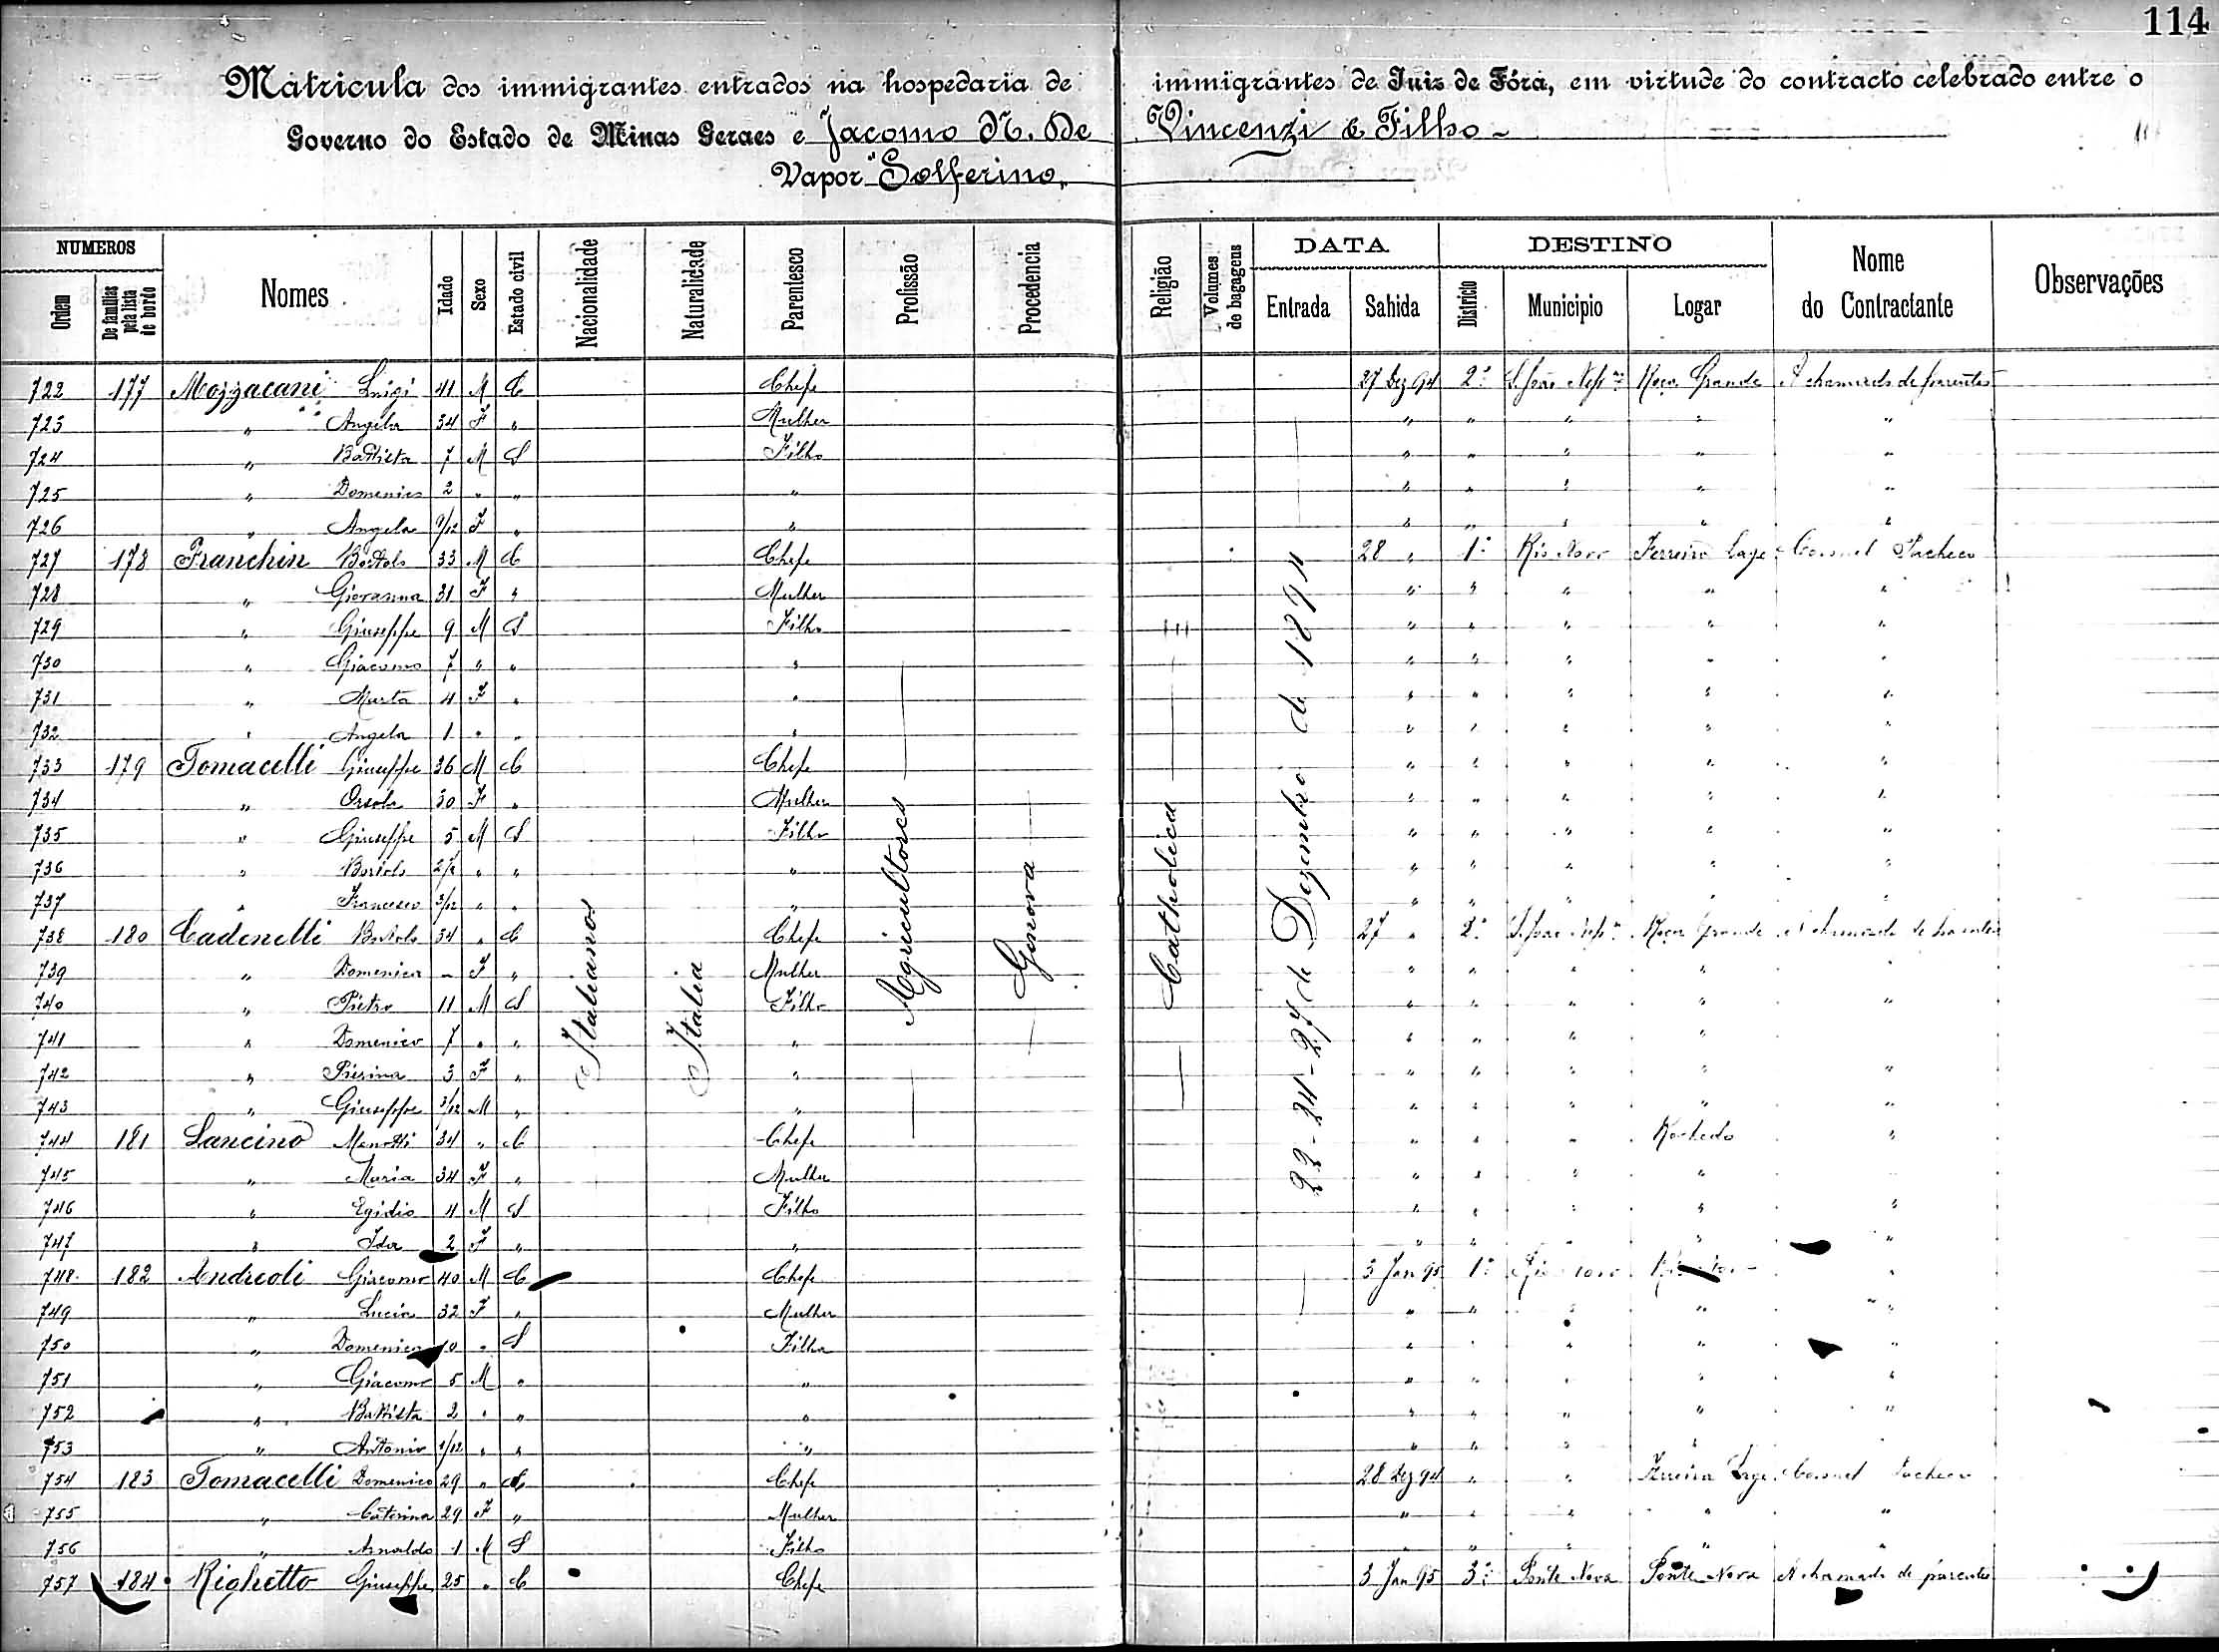 114
Matricula dos immigrantes entrados na hospedaria de immigrantes de Juiz de Fóra, em virtude do contracto celebrado entre o
Governo do Estado de Minas Geraes e Jacomo N. De Vincenzi & Filho
Vapor "Solferino"
NUMEROS DATA DESTINO
Ordem De familias pela lista de bordo Nomes Idade Sexo Estado civil Nacionalidade Naturalidade Parentesco Profissão Procedencia Religião Volumes de bagagens Entrada Sahida Districto Municipio Logar Nome do Contractante Observações
Italianos Italia Agricultores Genova Catholica 22-24-27 de Dezembro de 1894
722 177 Mozzacani Luigi 41 M C Chefe 27 Dez 94 2º S. João Nep.no Roça Grande A chamado de parentes
723 " Angela 34 F " Mulher " " " " "
724 " Battista 7 M S Filho " " " " "
725 " Domenico 2 " " " " " " " "
726 " Angela 9/12 F " " " " " " "
727 178 Franchin Bortolo 33 M C Chefe 28 " 1º Rio Novo Ferreira Lage Coronel Pacheco
728 " Giovanna 31 F " Mulher " " " " "
729 " Giuseppe 9 M S Filho " " " " "
730 " Giacomo 7 " " " " " " " "
731 " Marta 4 F " " " " " " "
732 " Angela 1 " " " " " " " "
733 179 Tomacelli Giuseppe 36 M C Chefe " " " " "
734 " Orsola 30 F " Mulher " " " " "
735 " Giuseppe 5 M S Filho " " " " "
736 " Bortolo " " " " " " " "
737 " Francesco 3/12 " " " " " " " "
738 180 Cadenelli Bortolo 34 " C Chefe 27 " 2º S. João Nep.no Roça Grande A chamado de parentes
739 " Domenica - F " Mulher " " " " "
740 " Pietro 11 M S Filho " " " " "
741 " Domenico 7 " " " " " " "
742 " Pierina 3 F " " " " " " "
743 " Giuseppe 3/12 M " " " " " " "
744 181 Lancino Menotti 34 " C Chefe " " " Rochedo "
745 " Maria 34 F " Mulher " " " " "
746 " Egidio 4 M S Filho " " " " "
747 " Ida 2 F " " " " " "
748 182 Andreoli Giacomo 40 M C Chefe 3 Jan 95 1º Rio Novo "
749 " Lucia 32 F " Mulher " " " " "
750 " Domenica 10 " S Filha " " " " "
751 " Giacomo 5 M " " " " " " "
752 " Battista 2 " " " " " " " "
753 " Antonio 1/12 " " " " " " "
754 183 Tomacelli Domenico 29 " C Chefe 28 Dez 94 " " Ferreira Lage Coronel Pacheco
755 " Caterina 29 F " Mulher " " " " "
756 " Arnaldo 1 M S Filho " " " " "
757 184 Righetto Giuseppe 25 " C Chefe 3 Jan 95 3º Ponte Nova Ponte Nova A chamado de parentes